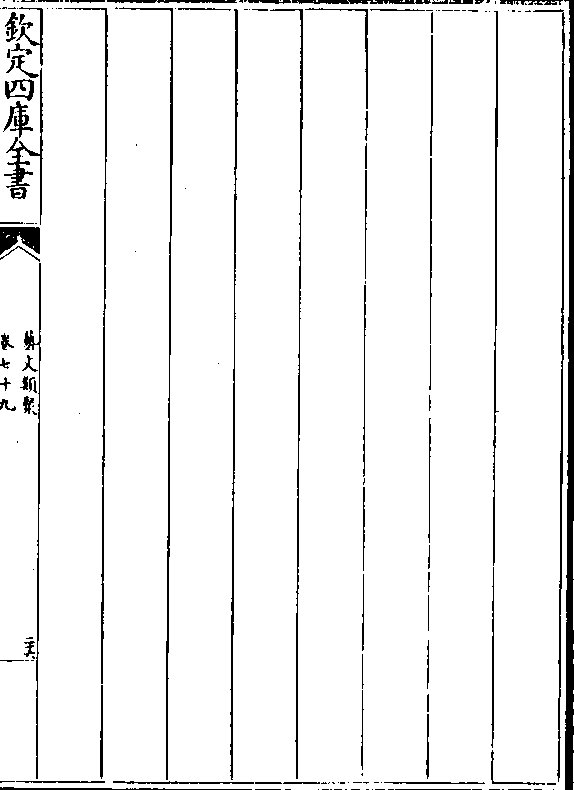 欽定四庫全書
藝文類聚
卷七十九